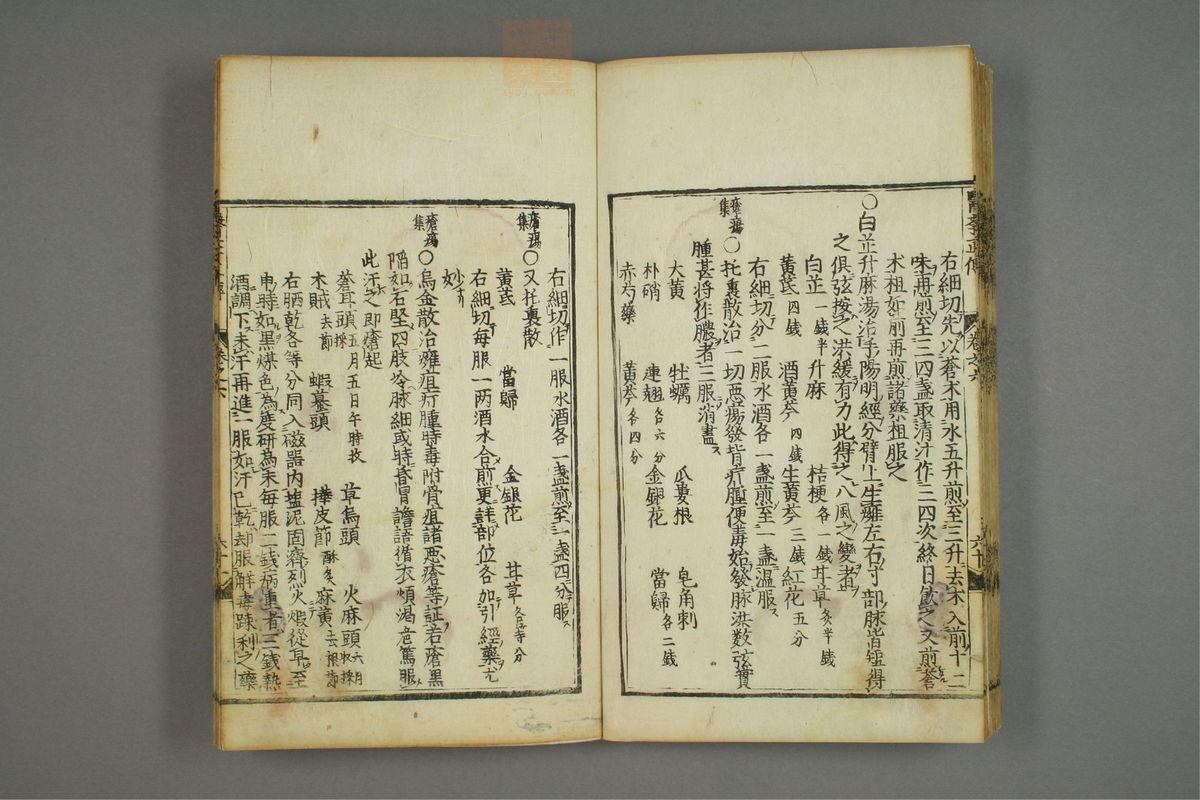 右細切先以蒼朮用水五升煎至三升去朮入前十二
味再煎至三四盞取清汁作三四次終日飲之又煎蒼
朮柤如前再煎諸藥柤服之
○白芷升麻湯治手陽明經分臂上生癰左右寸部脉皆短得
之俱弦按之洪緩有力此得之八風之變者
白芷一錢半 升麻 桔梗各一錢 甘草炙半錢
黄芪四錢 酒黄芩四錢 生黄芩三錢 紅花五分
右細切分二服水酒各一盞煎至一盞温服
瘡瘍集
○托裏散治一切惡瘍發背疔腫便毒始發脉洪数弦實
腫甚將作膿者三服消盡
大黄 牡蠣 瓜蔞根 皂角刺
朴硝 連翹各六分 金銀花
赤芍藥 黄芩各四分 當歸各二錢
右細切作一服水酒各一盞煎至一盞四分服
瘡瘍集
○又托裏散
黄芪 當歸 金銀花 甘草各等分
右細切每服一两酒水合煎更詳部位各加引經藥尤
妙
瘡瘍集
○烏金散治癰疽疔腫時毒附骨疽諸惡瘡等証若瘡黒
陷如石堅四肢冷脉細或時昏冒譫語循衣煩渇危篤服
此汗之即瘡起
蒼耳頭採五月五日午時 草烏頭 火麻頭六月
木賊去節 蝦蟇頭 樺皮節酥炙 麻黄去根節
右晒乾各等分同入磁器内塩泥固濟烈火煅從早至
申時如黒煤色為度研為末每服二錢病重者三錢熱
酒調下未汗再進一服如汗已乾却服解毒踈利之藥
醫學正傳
卷之六
六十